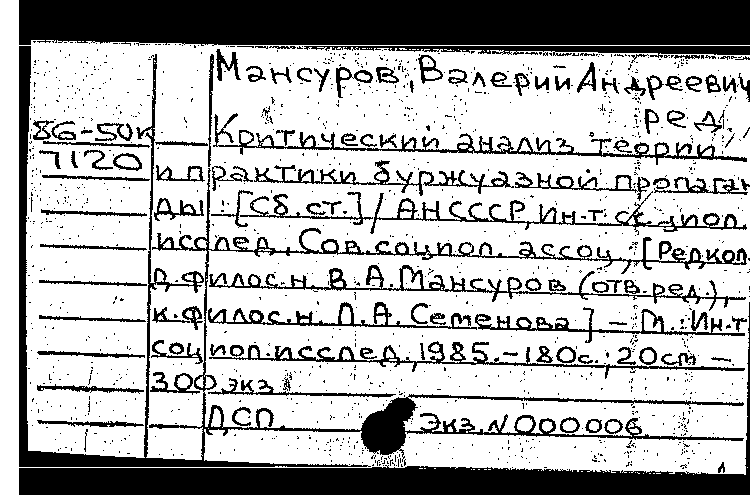 Мансуров, Валерий Андреевич
ред.
86-50к Критический анализ теории
7120 и практики буржуазной пропаган
ды : [Сб. ст.] / АН СССР, Ин-т социол.
исслед., Сов. социол. ассоц.; [Редкол.
д. филос. н. В. А. Мансуров (отв. ред.),
к. филос. н. Л. А. Семенова] – М. : Ин-т
социол. исслед., 1985. – 180 с.; 20 cm –
300 экз
ДСП. Экз. N 000006